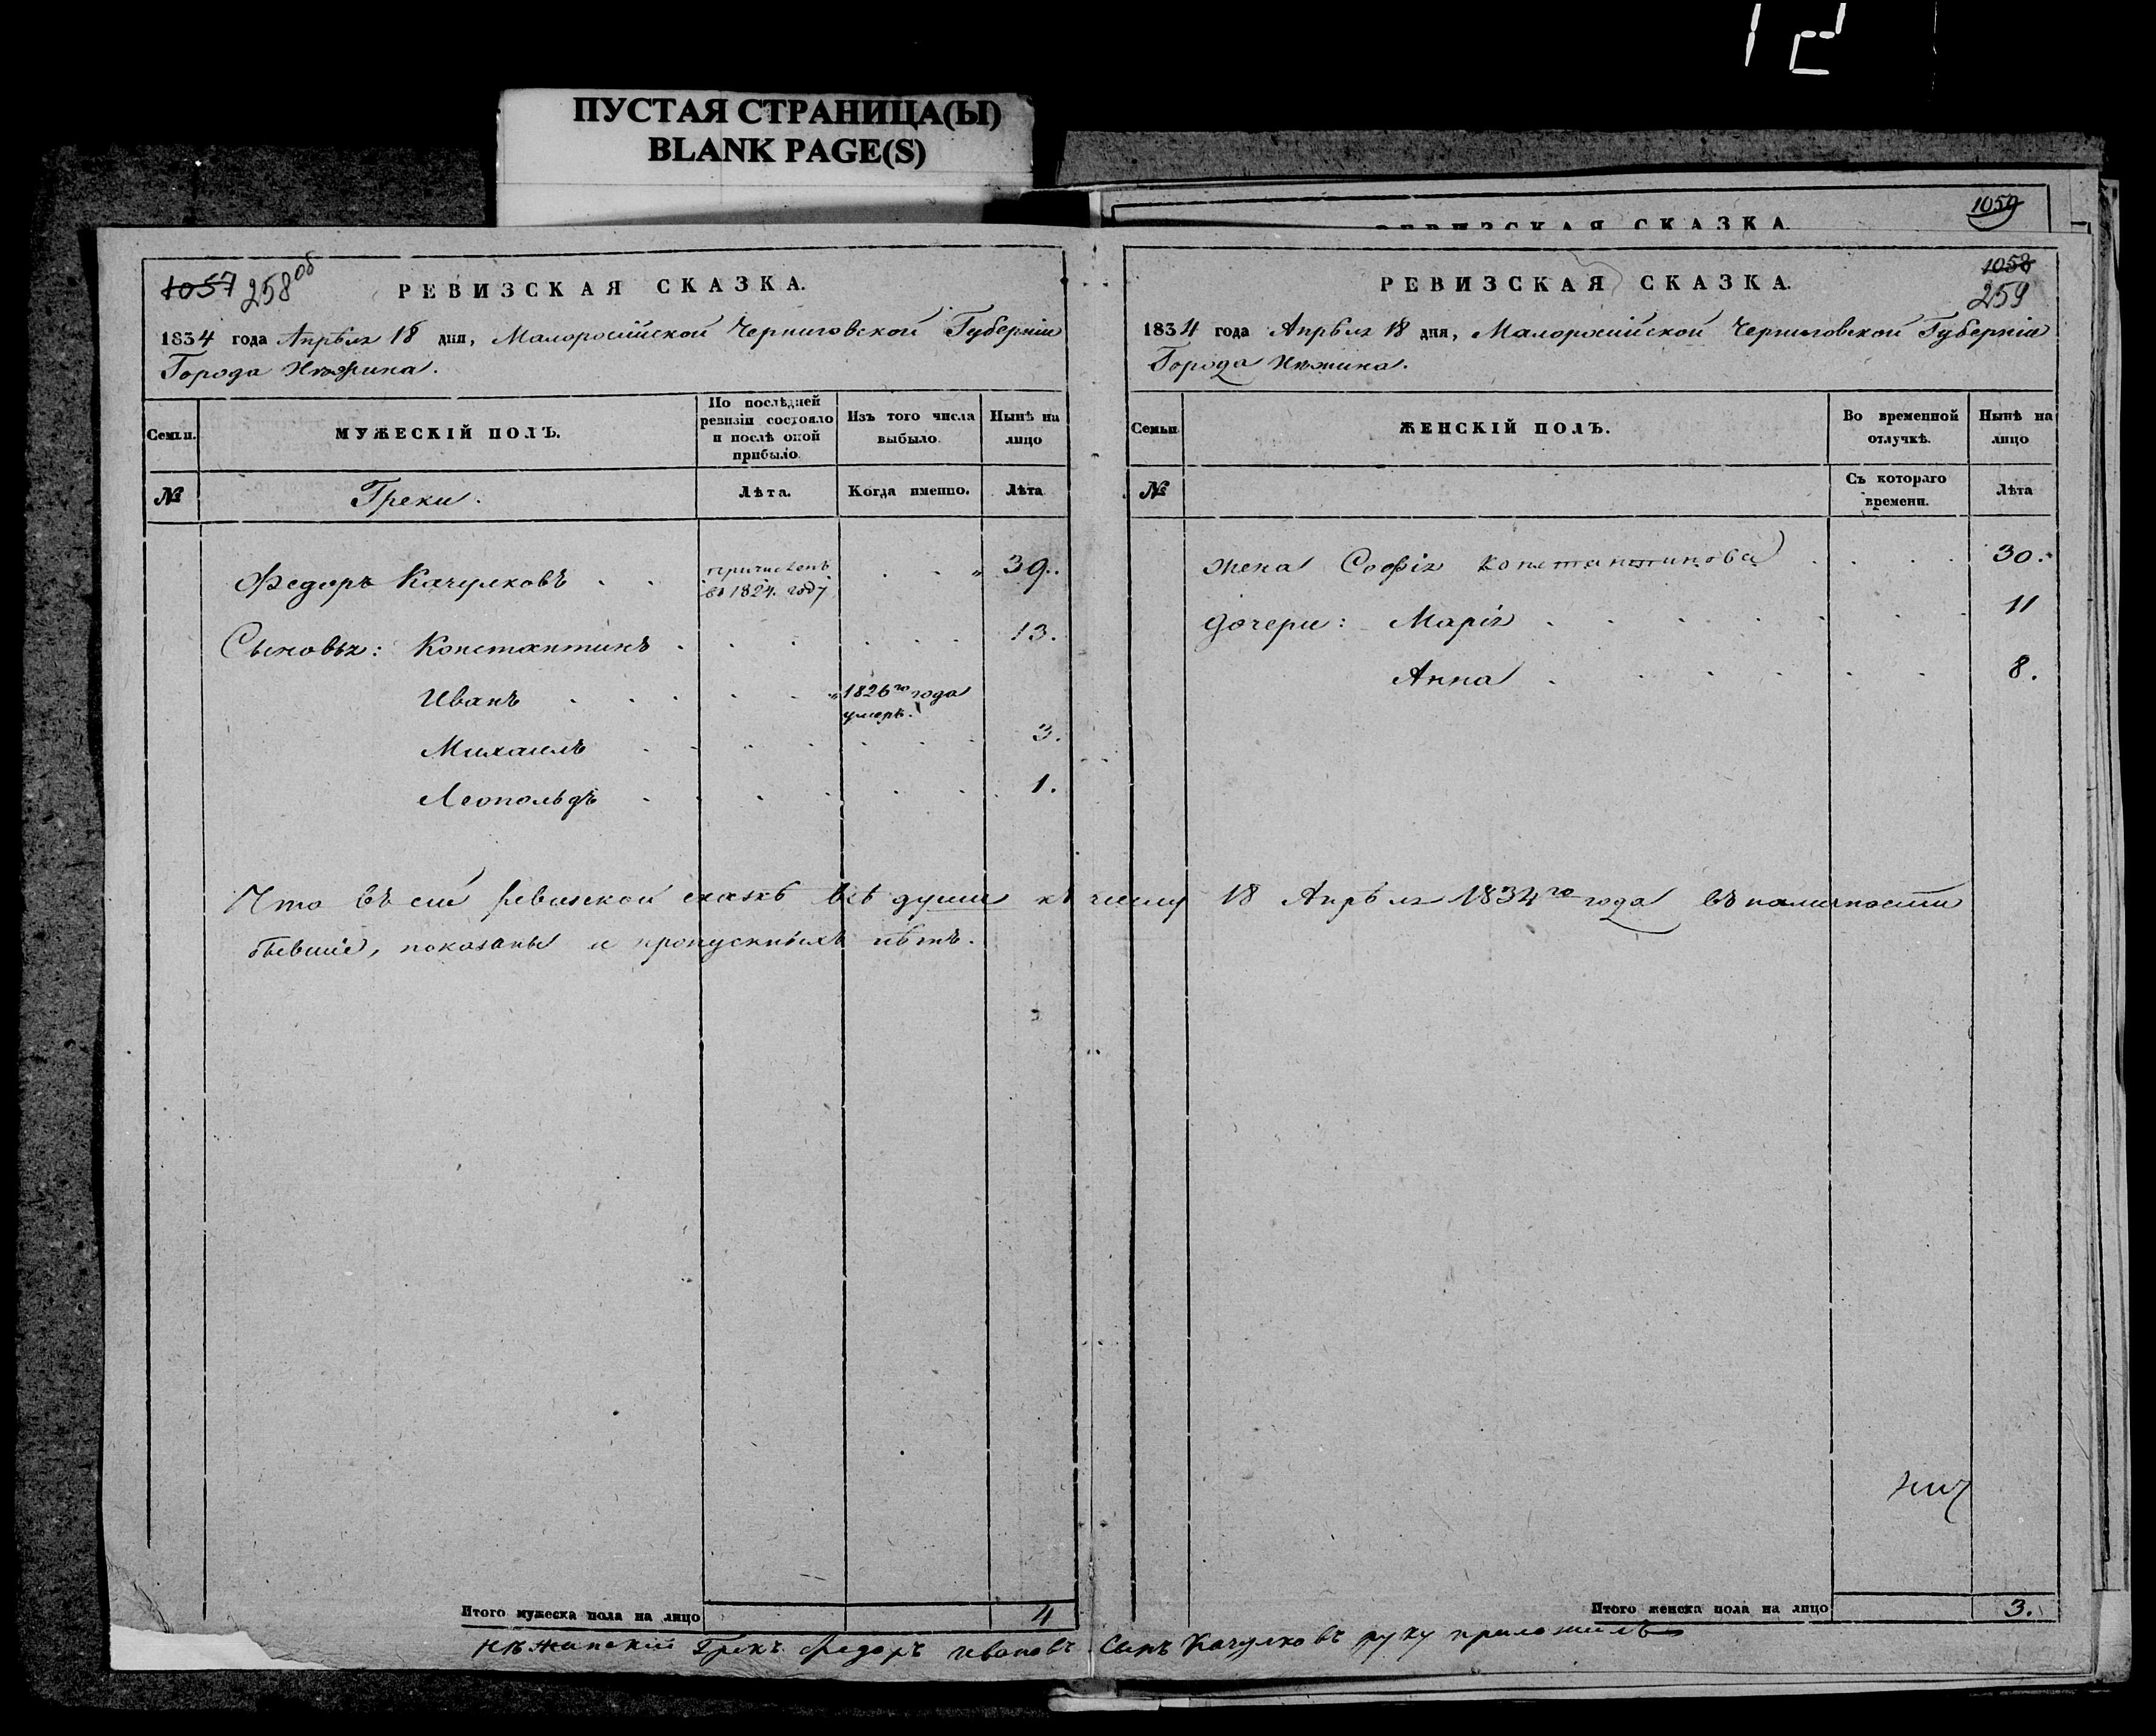 12
ПУСТАЯ СТРАНИЦА(Ы)
BLANK PAGE(S)
1059
РЕВИЗСКАЯ СКАЗКА.
1057 258 об
РЕВИЗСКАЯ СКАЗКА.
1834 года Апрѣля 18 дня, Малоросійской Черниговской Губерніи
Города Нѣжина.
Семьи.
МУЖЕСКІЙ ПОЛЪ.
По послѣдней
ревизіи состояло
и послѣ оной
прибыло.
Изъ того числа
выбыло.
Нынѣ на
лицо
№
Греки.
Лѣта.
Когда именно.
Лѣта
Федоръ Качулковъ . . причисленъ въ 1824. году . . „ 39.
Сыновья: Константинъ . . . . . . 13.
Иванъ . . . . . „ 1826го года умеръ.
Михаилъ . . . . . . 3.
Леопольдъ . . . . . . 1.
1058
259
РЕВИЗСКАЯ СКАЗКА.
1834 года Апрѣля 18 дня, Малоросійской Черниговской Губерніи
Города Нѣжина.
Семьи
ЖЕНСКІЙ ПОЛЪ.
Во временной
отлучкѣ.
Нынѣ на
лицо
№
Съ котораго
времени.
Лѣта
жена Софія Константинова . . . 30.
дочери: Марія . . . . . . . 11
Анна . . . . . . 8.
Что въ сей ревизской сказкѣ всѣ души къ числу 18 Апрѣля 1834го года въ наличности
бывшіе, показаны и пропускныхъ нѣтъ.
Итого мужеска пола на лицо 4
Итого женска пола на лицо 3.
Нѣжинскій Грекъ Федоръ Ивановъ Сынъ Качулковъ руку приложилъ